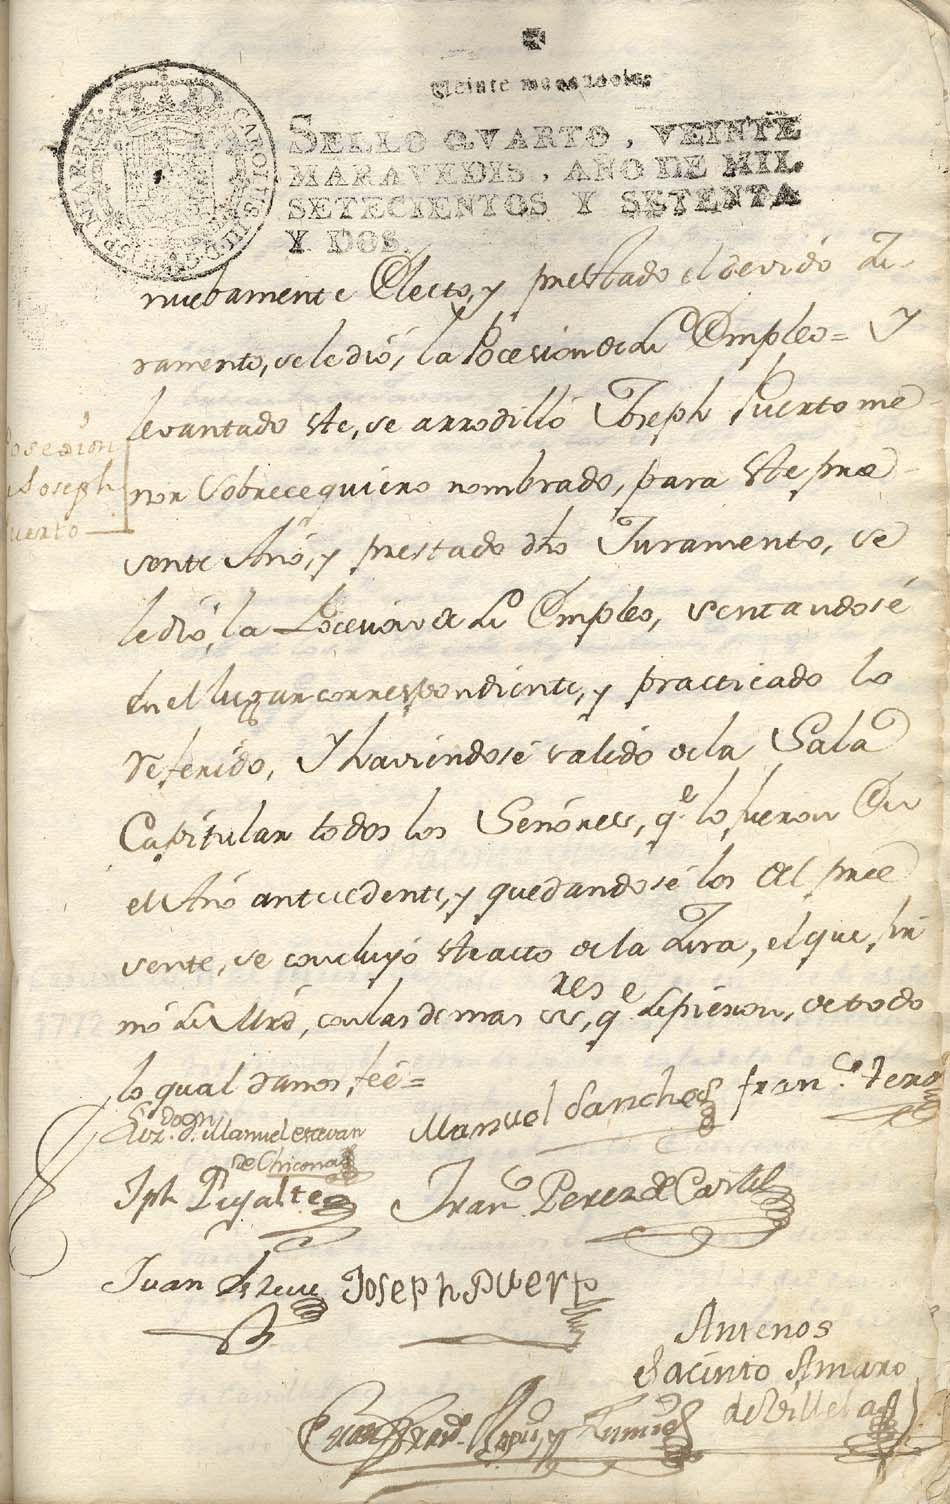 Veinte maravedis.
SELLO QVARTO, VEINTE
MARAVEDIS, AÑO DE MIL
SETECIENTOS Y SETENTA
Y DOS.
CAROLUS III D G HISPANIAR REX
nuebamente Electo, y prestado el devido Ju
ramento, se le dió, la Pocesion de su Empleo = Y
levantado este, se arrodilló Joseph Puerto me
nor Sobrecequiero nombrado, para este pre
sente Año, y prestado dho Juramento, se
le dió, la Pocesion de su Empleo, sentandosé
en el lugar correspondiente, y practicado lo
referido, Y haviendosé salido de la Sala
Capitular todos los Señores, qe. lo fueron En
el Año antecedente, y quedandosé los del pre
sente, se concluyó este acto de la Jura, el que, fir
mó su Mrd, con las demas sres, qe. supieron, de todo
lo qual damos feé =
Posesion
Joseph
Puerto
Liz.do Dn. Manuel Estevan
de Chicona
Manuel Sanches
Franco.
Jph Pugalte
Fran Perez de Castel
Juan
Joseph Puerto
Antenos
Jacinto Amaro
de Villela